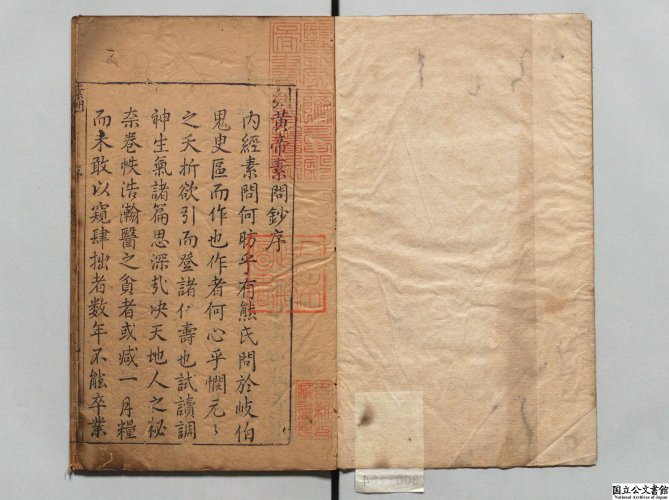 刻黃帝素問鈔序
內經素問何昉乎有熊氏問於岐伯
鬼臾區而作也作者何心乎憫元〻
之夭折欲引而登諸仁壽也試讀調
神生氣諸篇思深㢤决天地人之秘
柰卷帙浩瀚醫之貧者或咸一月糧
而未敢以窺肆拙者数年不能卒業
国立公文書館
National Archives of Japan